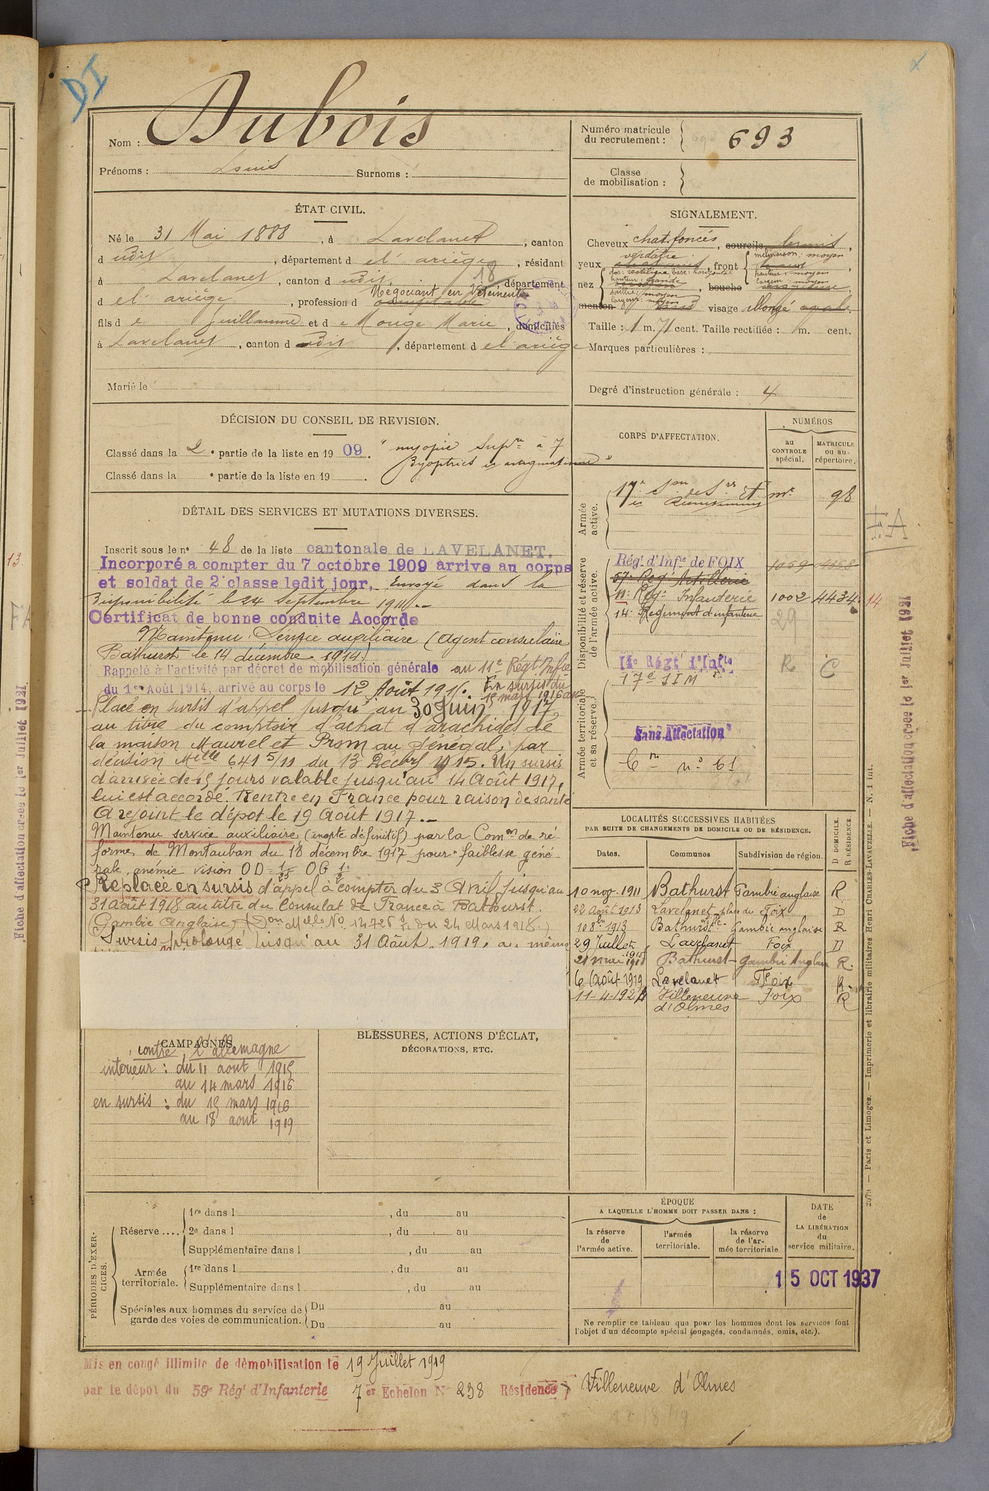 DI
Nom : Dubois
Prénoms : Louis Surnoms :
Numéro matricule du recrutement : 693
Classe de mobilisation :
ÉTAT CIVIL.
Né le 31 Mai 1888, à Lavelanet, canton
d udit, département d e l'ariège, résidant
à Lavelanet, canton d udit, département
d e l'ariège, profession d Négociant en Vêtements
fils d e Guillaume et d e Rouge Marie, domiciliés
à Lavelanet, canton d udit, département d e l'ariège
Marié le
SIGNALEMENT.
Cheveux chat. foncés, sourcils
yeux verdâtre, front
nez, bouche
menton visage allongé
Taille : 1 m. 71 cent. Taille rectifiée : m. cent.
Marques particulières :
Degré d'instruction générale : 4
DÉCISION DU CONSEIL DE REVISION.
Classé dans la 2e partie de la liste en 1909. "myopie Supre à 7
Classé dans la e partie de la liste en 19 . dyoptries et astigmatisme"
DÉTAIL DES SERVICES ET MUTATIONS DIVERSES.
Inscrit sous le n° 48 de la liste cantonale de LAVELANET.
Incorporé a compter du 7 octobre 1909 arrive au corps
et soldat de 2e classe ledit jour. Envoyé dans la
disponibilité le 24 Septembre 1911.-
Certificat de bonne conduite Accorde
Maintenu Service auxiliaire (Agent consulaire
Bathurst le 14 décembre 1914)
Rappelé à l'activité par décret de mobilisation générale au 11e Régt Infie
du 1er Août 1914, arrivé au corps le 12 Août 1915. En sursis du
15 mars 1916 au
Placé en sursis d'appel jusqu'au 30 Juin 1917
au titre du comptoir d'achat d'arachides de
la maison Maurel et Prom au Sénégal, par
décision Mlle 641 5/11 du 13 Décbre 1915. Un sursis
d'arrivée de 15 jours valable jusqu'au 14 Août 1917,
lui est accordé. Rentre en France pour raison de santé
A rejoint le dépôt le 19 Août 1917.-
Maintenu service auxiliaire (inapte définitif) par la Comon de ré
forme de Montauban du 18 décembre 1917 pour "faiblesse géné
rale, anémie, vision OD OG
Replacé en sursis d'appel à compter du 3 Avril jusqu'au
31 août 1918 au titre du Consulat de France à Bathurst.
(Gambie Anglaise) (Don Mlle No. 14726 du 24 Mars 1918)
Sursis prolongé jusqu'au 31 Août 1919, au même
CORPS D'AFFECTATION.
NUMÉROS
au CONTROLE spécial.
MATRICULE ou au répertoire.
Armée active.
17e Son de Sres Et mre 98
Disponibilité et réserve de l'armée active.
Régt d'Infie de FOIX
57e Reg Artillerie
11e Régt Infanterie 1002 4434 14
14e Régiment d'infanterie 29
Armée territoriale et sa réserve.
11e Régt d'Infie R C
17e SIM
Sans Affectation
Con no 61
LOCALITÉS SUCCESSIVES HABITÉES
PAR SUITE DE CHANGEMENTS DE DOMICILE OU DE RÉSIDENCE.
Dates. Communes Subdivision de région. D. DOMICILE. R. RÉSIDENCE.
10 nov 1911 Bathurst Gambie anglaise R
22 Août 1913 Lavelanet Foix D
10 8bre 1913 Bathurst Gambie anglaise R
29 Juillet 1915 Lavelanet Foix D
21 mai 1918 Bathurst Gambie Anglaise R
6 Août 1919 Lavelanet Foix R
11-4-1924 Villeneuve d'Olmes Foix R
CAMPAGNES
contre l'allemagne
intérieur : du 11 août 1915
au 14 mars 1916
en sursis : du 15 mars 1916
au 18 août 1919
BLESSURES, ACTIONS D'ÉCLAT,
DÉCORATIONS, ETC.
PÉRIODES D'EXERCICES.
Réserve ....
1re dans l , du au
2e dans l , du au
Supplémentaire dans l , du au
Armée territoriale.
1re dans l , du au
Supplémentaire dans l , du au
Spéciales aux hommes du service de garde des voies de communication.
Du au
Du au
ÉPOQUE
A LAQUELLE L'HOMME DOIT PASSER DANS :
la réserve de l'armée active.
l'armée territoriale.
la réserve de l'armée territoriale.
DATE de LA LIBÉRATION du service militaire.
15 OCT 1937
Ne remplir ce tableau que pour les hommes dont les services font
l'objet d'un décompte spécial (engagés, condamnés, omis, etc.).
Mis en congé illimité de démobilisation le 19 Juillet 1919
par le dépôt du 59e Régt d'Infanterie 7er Echelon N° 238 Résidence Villeneuve d'Olmes
Fiche d'affectation créée le 1er Juillet 1921
Fiche d'affectation créée le 1er Juillet 1921
2070 — Paris et Limoges. — Imprimerie et librairie militaires Henri CHARLES-LAVAUZELLE. — N. 1 int.
13